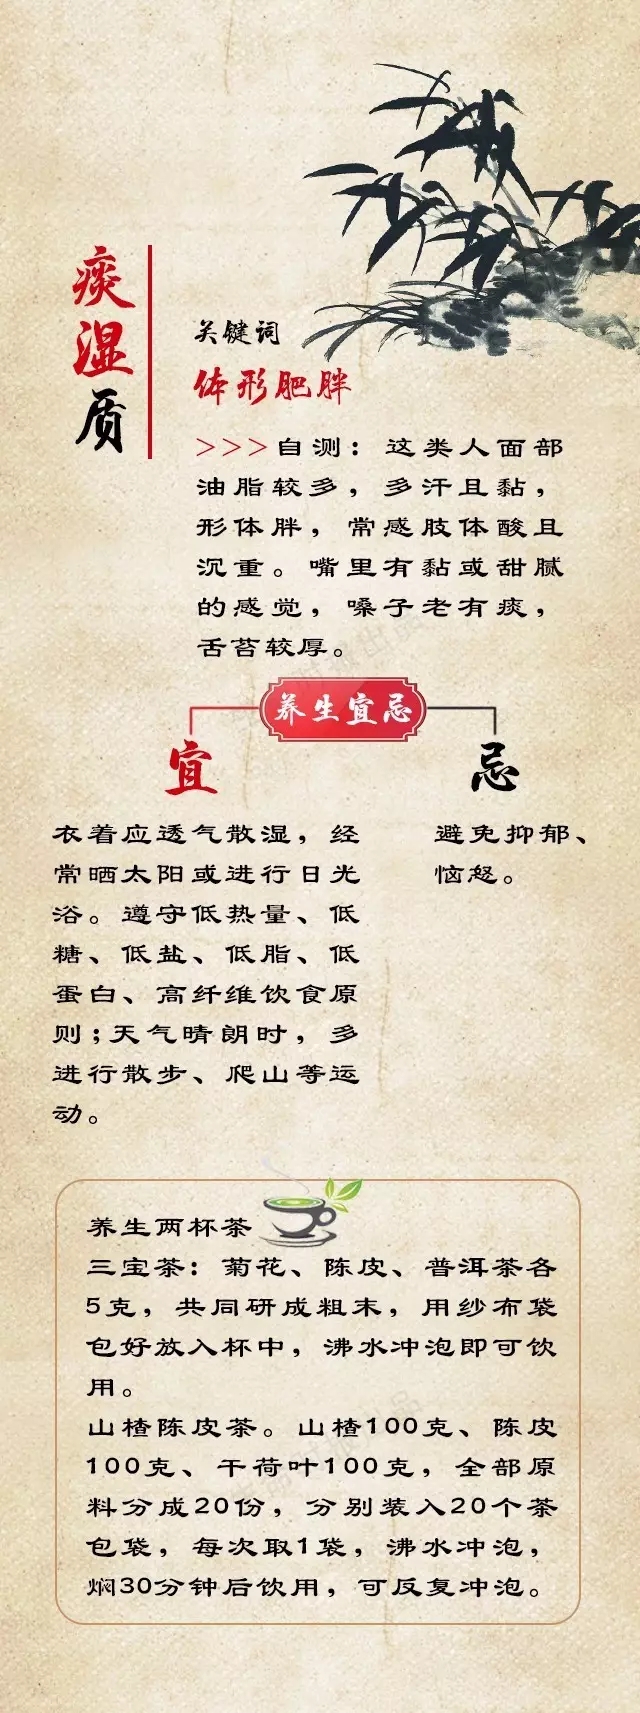 痰湿质
关键词
体形肥胖
>>>自测：这类人面部
油脂较多，多汗且黏，
形体胖，常感肢体酸且
沉重。嘴里有黏或甜腻
的感觉，嗓子老有痰，
舌苔较厚。
养生宜忌
宜
忌
衣着应透气散湿，经
常晒太阳或进行日光
浴。遵守低热量、低
糖、低盐、低脂、低
蛋白、高纤维饮食原
则；天气晴朗时，多
进行散步、爬山等运
动。
避免抑郁、
恼怒。
养生两杯茶
三宝茶：菊花、陈皮、普洱茶各
5克，共同研成粗末，用纱布袋
包好放入杯中，沸水冲泡即可饮
用。
山楂陈皮茶。山楂100克、陈皮
100克、干荷叶100克，全部原
料分成20份，分别装入20个茶
包袋，每次取1袋，沸水冲泡，
焖30分钟后饮用，可反复冲泡。